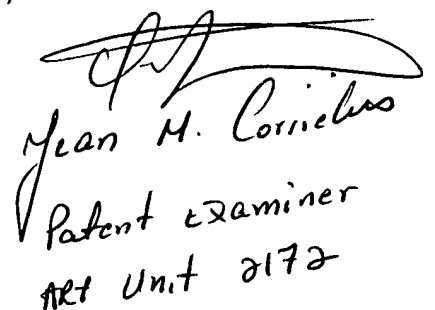 Jean M. Corrielus
Patent Examiner
ART Unit 2172